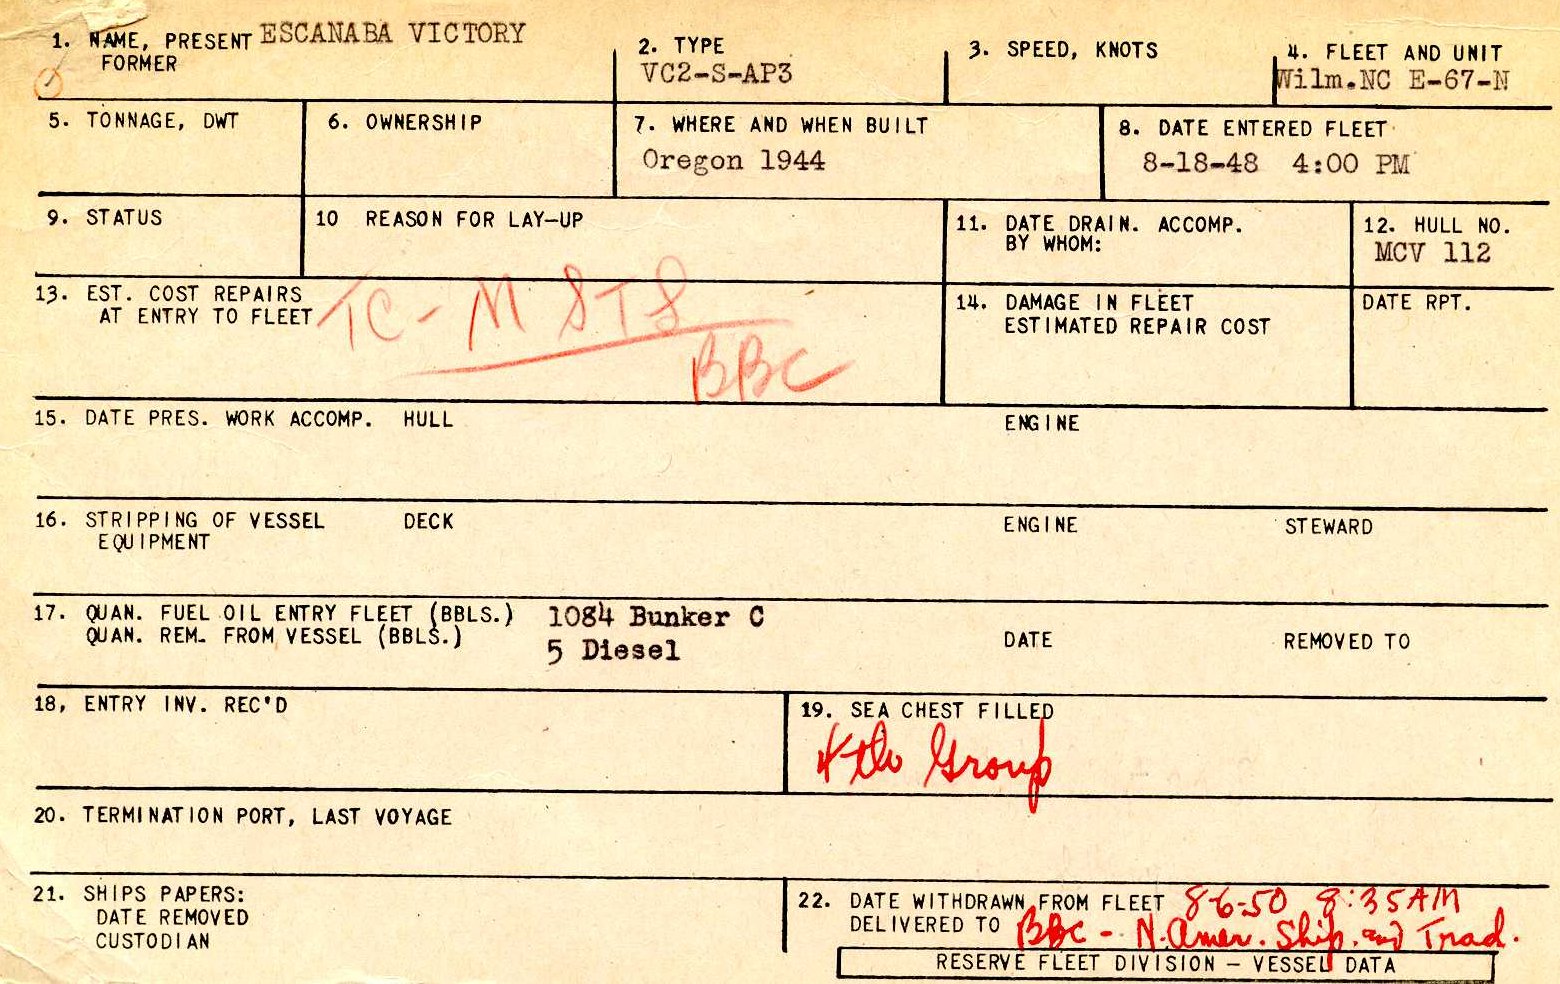 1. NAME, PRESENT ESCANABA VICTORY
FORMER
2. TYPE
VC2-S-AP3
3. SPEED, KNOTS
4. FLEET AND UNIT
Wilm.NC E-67-N
5. TONNAGE, DWT
6. OWNERSHIP
7. WHERE AND WHEN BUILT
Oregon 1944
8. DATE ENTERED FLEET
8-18-48 4:00 PM
9. STATUS
10 REASON FOR LAY-UP
11. DATE DRAIN. ACCOMP.
BY WHOM:
12. HULL NO.
MCV 112
13. EST. COST REPAIRS
AT ENTRY TO FLEET
TC- MSTS
BBC
14. DAMAGE IN FLEET
ESTIMATED REPAIR COST
DATE RPT.
15. DATE PRES. WORK ACCOMP. HULL
ENGINE
16. STRIPPING OF VESSEL DECK
EQUIPMENT
ENGINE
STEWARD
17. QUAN. FUEL OIL ENTRY FLEET (BBLS.) 1084 Bunker C
QUAN. REM. FROM VESSEL (BBLS.) 5 Diesel
DATE
REMOVED TO
18, ENTRY INV. REC'D
19. SEA CHEST FILLED
Group
20. TERMINATION PORT, LAST VOYAGE
21. SHIPS PAPERS:
DATE REMOVED
CUSTODIAN
22. DATE WITHDRAWN FROM FLEET 8-6-50 8:35AM
DELIVERED TO BBC - N. Amer. Ship. and Trad.
RESERVE FLEET DIVISION - VESSEL DATA